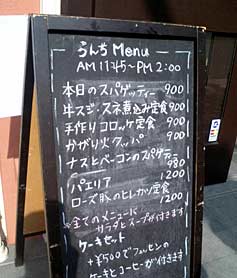 らんち Menu
AM 11:45~PM 2:00
本日のスパゲッティー 900
牛スジ、スネ煮込み定食 900
手作りコロッケ定食 900
かがり火ブッパ 900
ナスとベーコンのスパゲティ 980
パエリア 1200
ローズ豚のヒレカツ定食 1200
全てのメニューに
サラダとスープが付きます
ケーキセット
+¥500で
ケーキとコーヒーが付きます